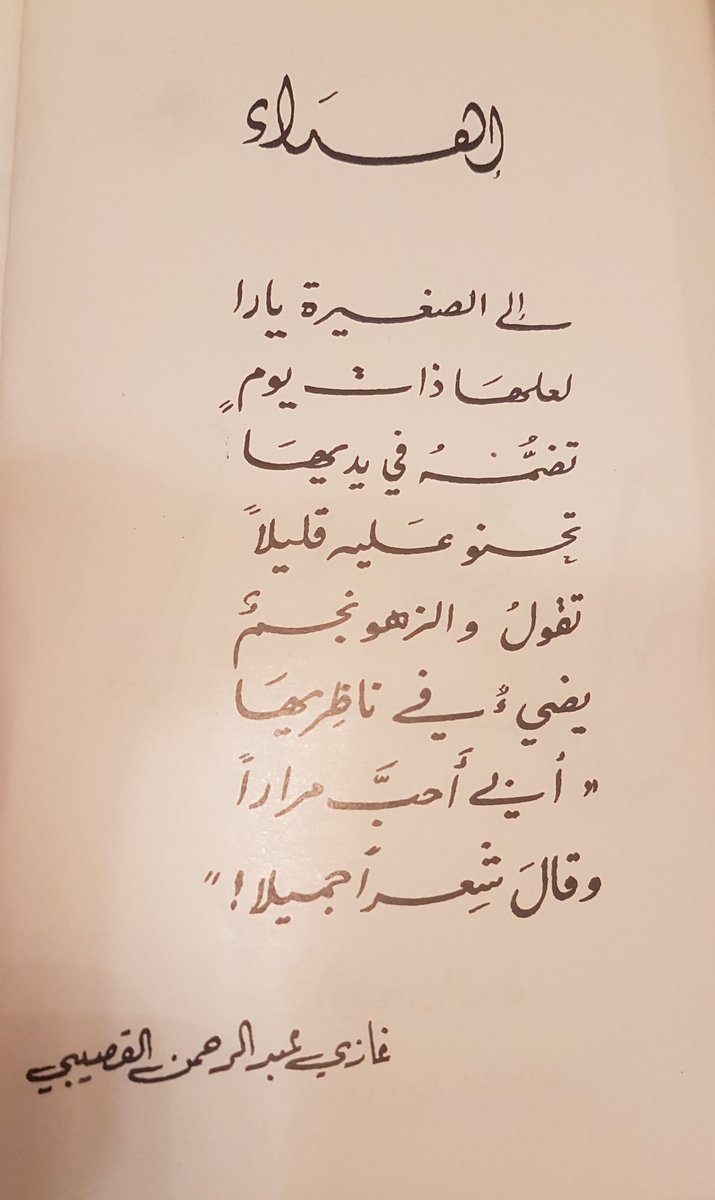 إهداء
إلى الصغيرة يارا
لعلهَا ذات يومٍ
تضمُّهُ في يديهَا
تحنو عَليه قليلاً
تقولُ والزهو نجمٌ
يضيءُ في ناظِريهَا
"أبي أَحبَّ مراراً
وقالَ شِعراً جميلا!"
غازي عبد الرحمن القصيبي